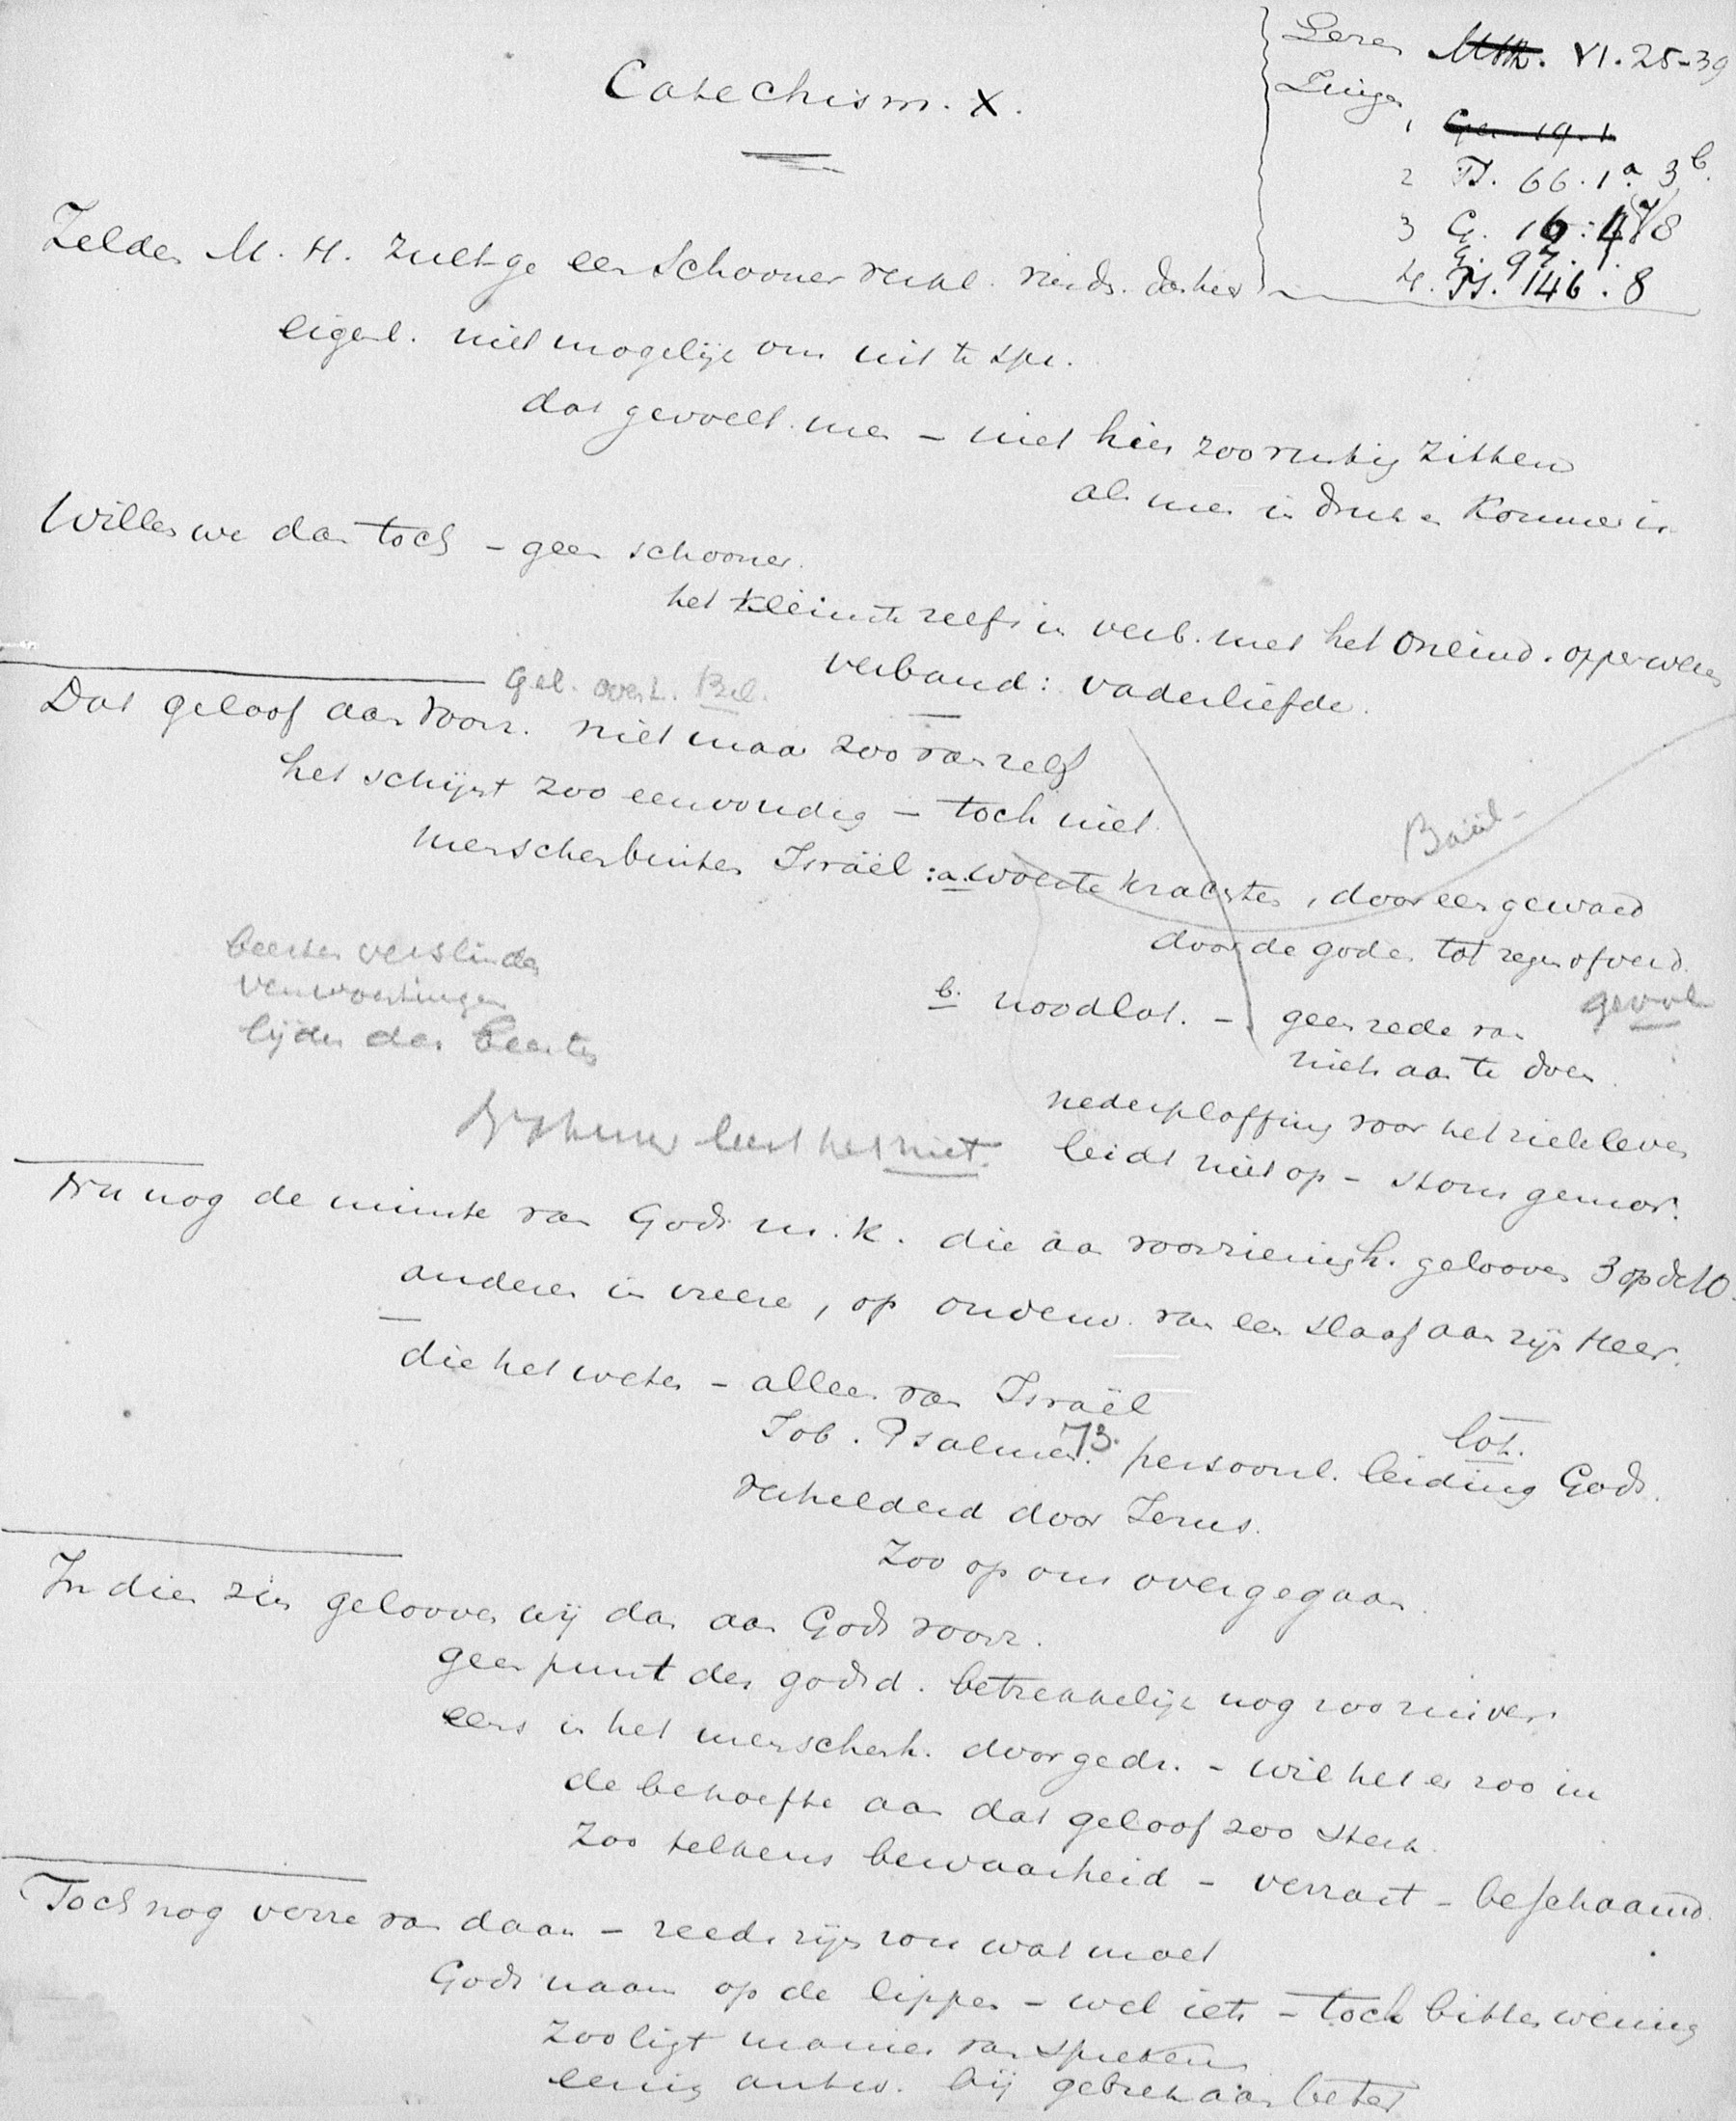 Catechism. X.
Lezen Mtth. VI. 25-39
Zingen
1 Gez. 19. 1
2 Ps. 66. 1a. 3b.
3 G. 16: 4/8
G. 97. 1.
4. Ps. 146. 8
Zelden M. H. zult ge een schooner verkl. vinds. dan hier
eigenl. niet mogelijk om uit te spr.
dat gevoelt men - niet hier zoo rustig zitten
als men in druk en kommer is
Willen we dan toch - geen schooner.
het kleinste zelfs in verb. met het oneind. opperwezen
verband: vaderliefde.
Gel. over h. Bel.
Dat geloof aan voorz. niet maar zoo van zelf
het schijnt zoo eenvoudig - toch niet.
menschen buiten Israël: a. woeste krachten, door een gewaed
Baäl
door de goden tot zegen of verd.
beesten verslinden
verwoestingen
lijden dan beesten
b. noodlot. - geen rede van
gevoel
niets aan te doen.
nederploffing voor het zieleleven
leert het niet.
leidt niet op - stom gemor.
Nu nog de minste van Gods m. k. die aan voorzienigh. gelooven 3 op de 10.
anderen in vreeze, op onderw. van een slaaf aan zijn Heer.
die het weten - alleen van Israël
Job. Psalmen. 73. persoonl. leiding Gods.
lot.
verhelderd door Jezus.
Zoo op ons overgegaan.
In dien zin gelooven wij dan aan Gods voorz.
geen punt der godsd. betrekkelijk nog zoo zuiver.
eens in het menschenh. doorgedr. - wil het er zoo in
de behoefte aan dat geloof zoo sterk.
Zoo telkens bewaarheid - verrast - beschaamd.
Toch nog verre van daar - reeds zijn zou wat moet
Gods naam op de lippen - wel iets - toch bitter weinig
zoo ligt manier van spreken
eenig antw. bij gebrek aan beter